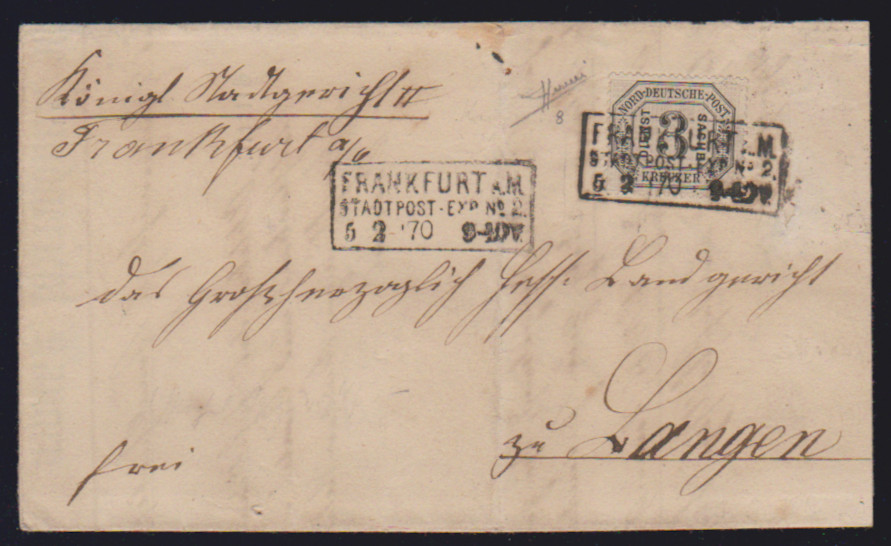 Königl Stadtgericht II
Frankfurt a/
8
NORD-DEUTSCHE-POST
3
KREUZER
FRANKFURT A.M.
STADTPOST-EXP. No 2.
5 2 70 9-10V.
FRANKFURT A.M.
STADTPOST-EXP. No 2.
5 2 '70 9-10V.
das Großherzoglich Hess. Landgericht
zu Langen
frei